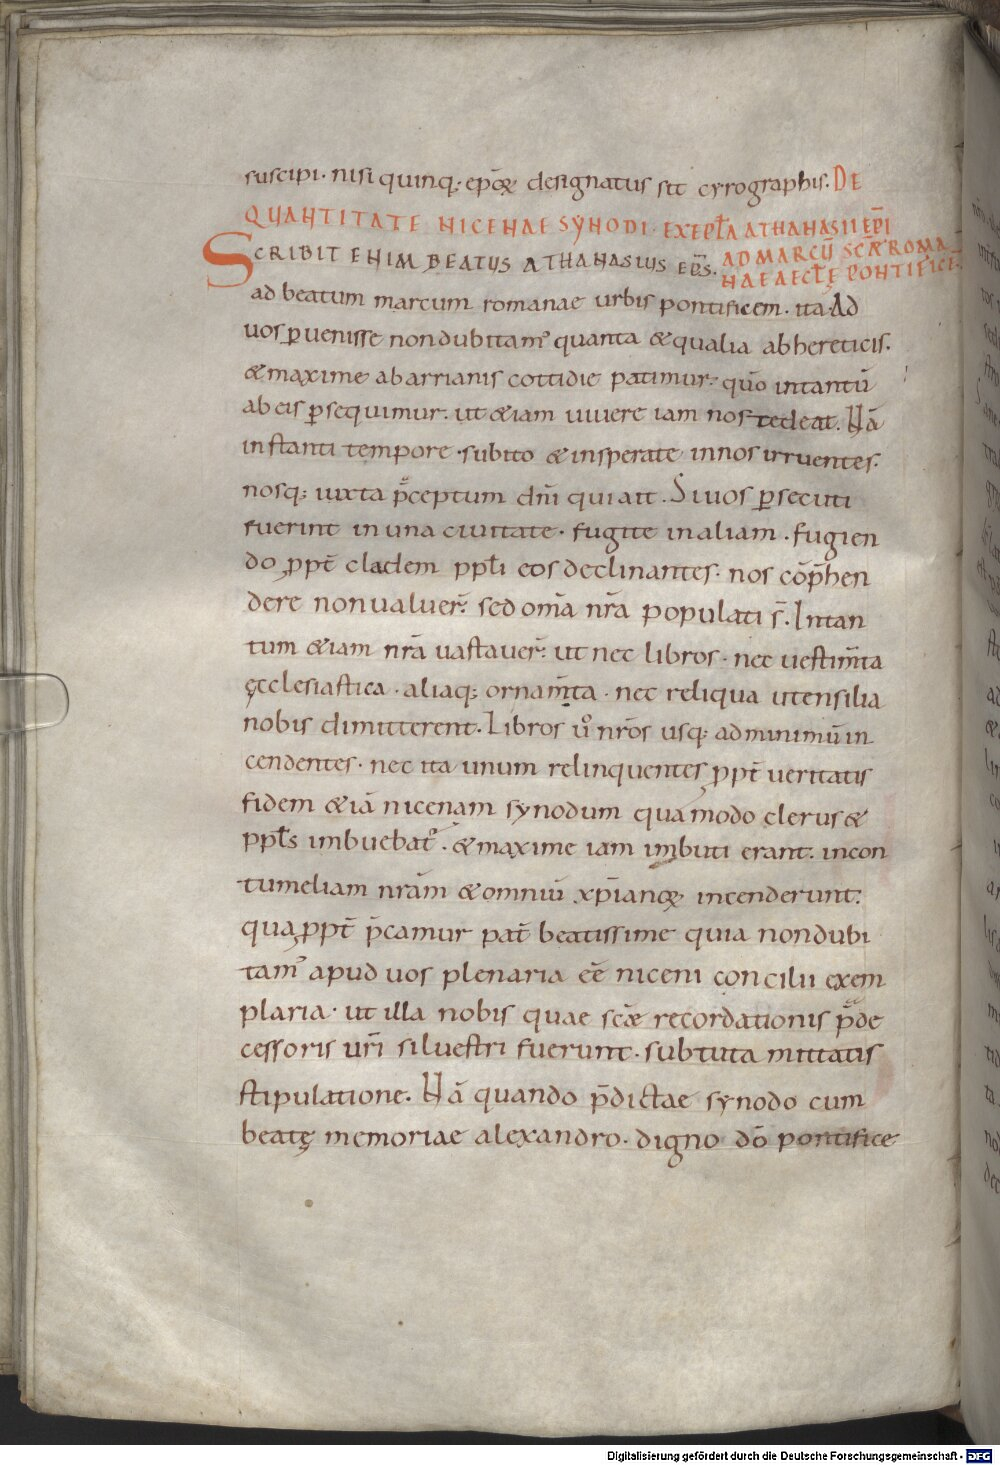 suscipi · nisi quinq; ep̄oꝝ designatus sit cyrographis. DE
QUANTITATE NICENAE SYNODI · EXEPL̄A ATHANASII EP̄I
AD MARCŪ SC̄AE ROMA
SCRIBIT ENIM BEATUS ATHANASIUS EP̄S.
NAE AECL̄Ę PONTIFICĒ.
ad beatum marcum romanae urbis pontificem · ita · Ad
uos ꝑuenisse non dubitam᾽ quanta & qualia ab hereticis.
& maxime ab arrianis cottidie patimur; quō in tantū
ab eis ꝑsequimur · ut &iam uiuere iam nos tedeat. Nā
instanti tempore · subito & insperate in nos irruentes.
nosq; iuxta p̄ceptum dn̄i qui ait. Si uos ꝑsecuti
fuerint in una ciuitate · fugite in aliam. fugien
do ꝓpt̄ cladem ppl̄i eos declinantes · nos cōp̄hen
dere non ualuer̄. sed om̄a nr̄a populati s̄. In tan
tum &iam nr̄a uastauer̄. ut nec libros · nec uestim̄ta
ęcclesiastica · aliaq; ornam̄ta · nec reliqua utensilia
nobis dimitterent. Libros u̓o nr̄os usq; ad minimū in
cendentes · nec ita unum relinquentes ꝓpt̄ ueritatis
fidem &iā nicenam synodum qua modo clerus &
ppl̄s imbuebat᾽. & maxime iam imbuti erant. in con
tumeliam nr̄am & omniū xp̄ianoꝝ incenderunt.
qua ꝓpt̄ p̄camur pat̄ beatissime quia non dubi
tam᾽ apud uos plenaria eē niceni concilii exem
plaria · ut illa nobis quae sc̄ae recordationis p̄de
cessoris ur̄i siluestri fuerunt · sub tuta mittatis
stipulatione. Nā quando p̄dictae synodo cum
beatę memoriae alexandro · digno dō pontifice
Digitalisierung gefördert durch die Deutsche Forschungsgemeinschaft - DFG